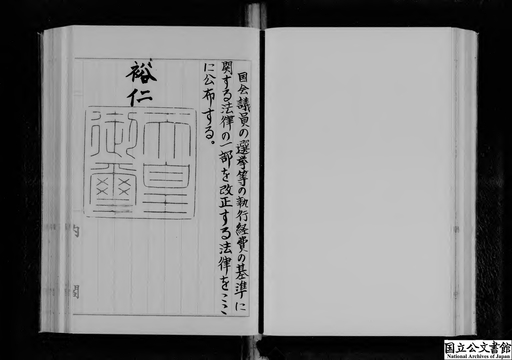 国会議員の選挙等の執行経費の基準に
関する法律の一部を改正する法律をここ
に公布する。
裕仁
天皇御璽
内閣
国立公文書館
National Archives of Japan